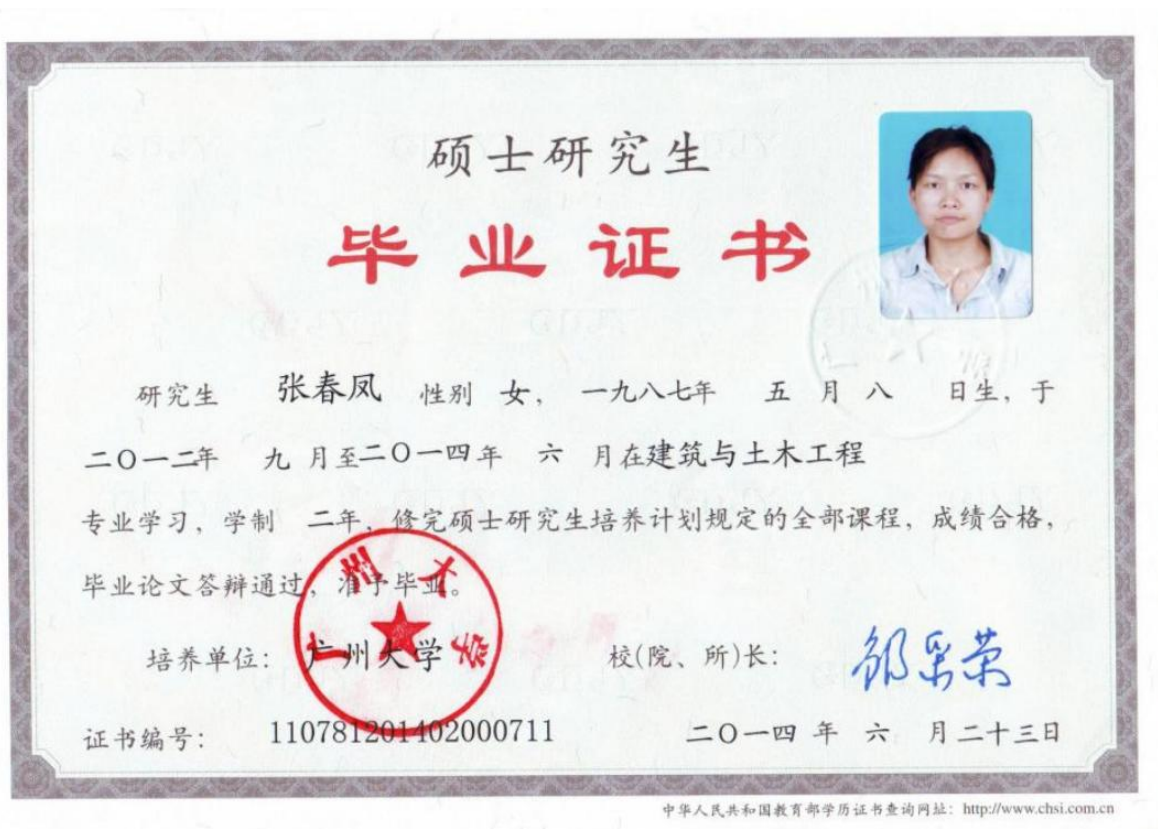 硕士研究生
毕业证书
研究生 张春凤 性别 女， 一九八七年 五 月 八 日生，于
二〇一二年 九 月至二〇一四年 六 月在建筑与土木工程
专业学习，学制 二年，修完硕士研究生培养计划规定的全部课程，成绩合格，
毕业论文答辩通过，准予毕业。
广州大学
培养单位： 广州大学 校(院、所)长：
证书编号： 110781201402000711 二〇一四 年 六 月二十三日
中华人民共和国教育部学历证书查询网址：http://www.chsi.com.cn